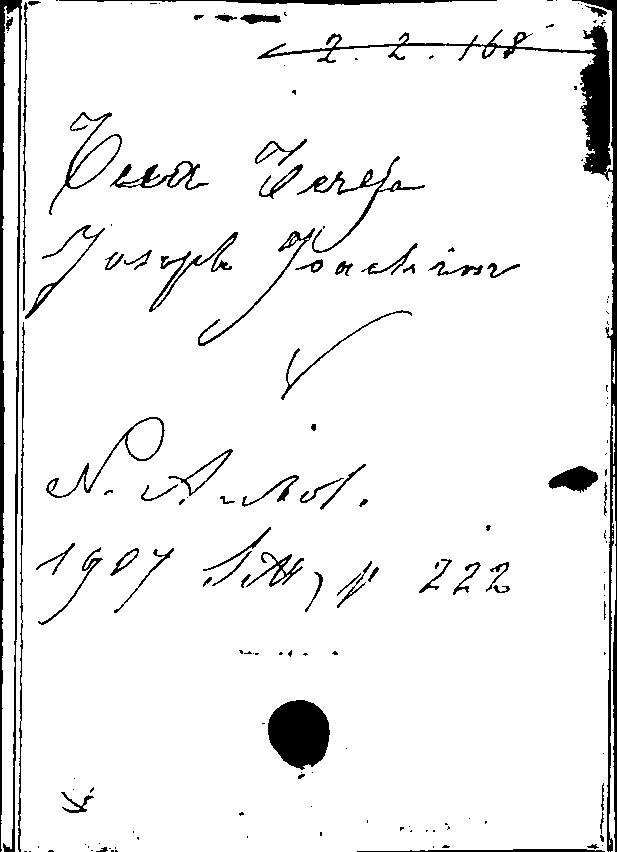 2.2.168
Tua Teresa
Joseph Joachim
N. Antol.
1907 Sett, p 222